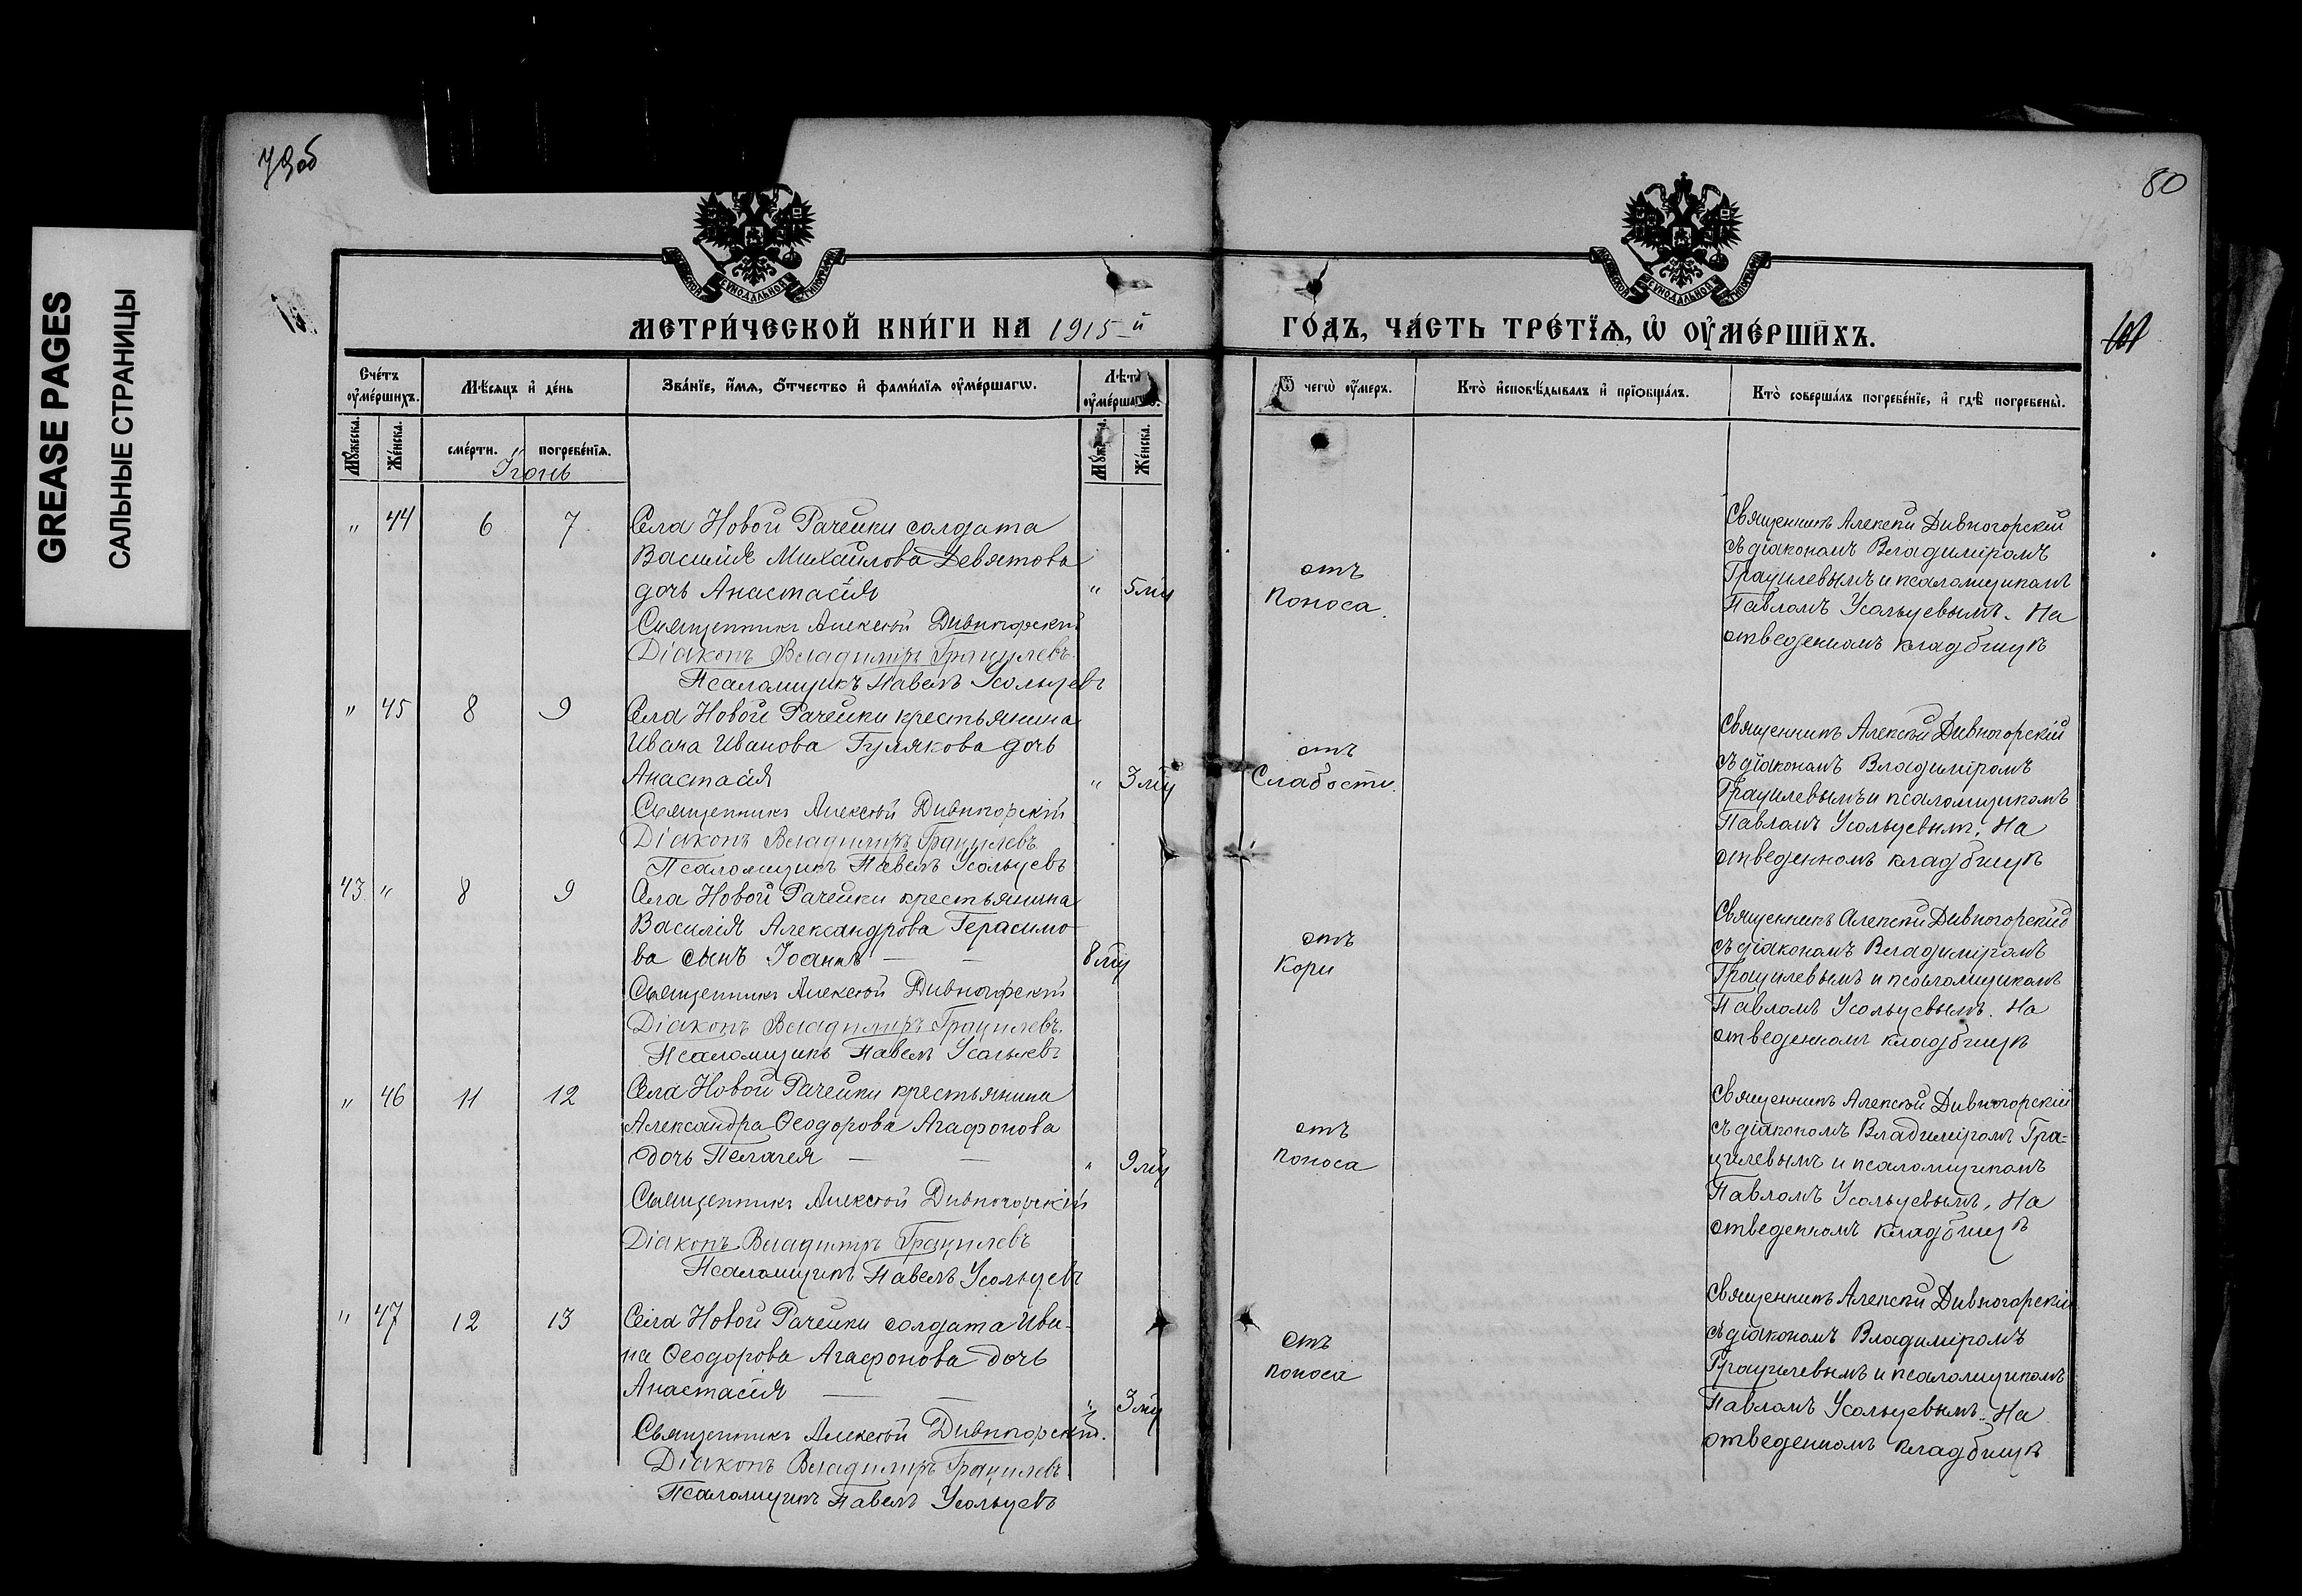 GREASE PAGES
САЛЬНЫЕ СТРАНИЦЫ
79об
80
МЕТРИ́ЧЕСКОЙ КНИ́ГИ НА 1915-й
ГО́ДЪ, ЧА́СТЬ ТРЕ́ТЇѦ, Ѡ҆ ОУ҆МЕ́РШИХЪ.
Сче́тъ оу҆ме́ршихъ.
Мѣ́сѧцъ и҆ де́нь
Зва́нїе, и҆́мѧ, ѻ҆́тчество и҆ фами́лїѧ оу҆ме́ршагѡ.
Лѣта̀ оу҆ме́ршагѡ.
Ѿ чегѡ̀ оу҆́меръ.
Кто̀ и҆сповѣ́дывалъ и҆ прїѻбща́лъ.
Кто̀ соверша́лъ погребе́нїе, и҆ гдѣ̀ погребены̀.
Мꙋ́жеска.
Же́нска.
сме́рти.
погребе́нїѧ.
Мꙋ́жеска.
Же́нска.
Іюнь
" 44 6 7 Села Новой Рачейки солдата
Василія Михайлова Девятова
дочь Анастасія " 5 мц
Священникъ Алексѣй Дивногорскій
Діаконъ Владиміръ Грацилевъ.
Псаломщикъ Павелъ Усольцевъ
отъ
Поноса.
Священникъ Алексѣй Дивногорскій
съ діакономъ Владиміромъ
Грацилевымъ и псаломщикомъ
Павломъ Усольцевымъ. На
отведенномъ кладбищѣ
" 45 8 9 Села Новой Рачейки крестьянина
Ивана Иванова Гулякова дочь
Анастасія " 3 мц
Священникъ Алексѣй Дивногорскій
Діаконъ Владиміръ Грацилевъ
Псаломщикъ Павелъ Усольцевъ
отъ
Слабости.
Священникъ Алексѣй Дивногорскій
съ діакономъ Владиміромъ
Грацилевымъ и псаломщикомъ
Павломъ Усольцевымъ. На
отведенномъ кладбищѣ
43 " 8 9 Села Новой Рачейки крестьянина
Василія Александрова Герасимо-
ва сынъ Іоаннъ — — 8 мц
Священникъ Алексѣй Дивногорскій
Діаконъ Владиміръ Грацилевъ.
Псаломщикъ Павелъ Усольцевъ
отъ
Кори
Священникъ Алексѣй Дивногорскій
съ діакономъ Владиміромъ
Грацилевымъ и псаломщикомъ
Павломъ Усольцевымъ. На
отведенномъ кладбищѣ
" 46 11 12 Села Новой Рачейки крестьянина
Александра Ѳеодорова Агафонова
дочь Пелагея — — " 9 мц
Священникъ Алексѣй Дивногорскій
Діаконъ Владиміръ Грацилевъ
Псаломщикъ Павелъ Усольцевъ
отъ
поноса
Священникъ Алексѣй Дивногорскій
съ діакономъ Владиміромъ Гра-
цилевымъ и псаломщикомъ
Павломъ Усольцевымъ. На
отведенномъ кладбищѣ
" 47 12 13 Села Новой Рачейки солдата Ива-
на Ѳеодорова Агафонова дочь
Анастасія — — " 3 мц
Священникъ Алексѣй Дивногорскій.
Діаконъ Владиміръ Грацилевъ
Псаломщикъ Павелъ Усольцевъ
Отъ
поноса
Священникъ Алексѣй Дивногорскій
съ діакономъ Владиміромъ
Грацилевымъ и псаломщикомъ
Павломъ Усольцевымъ. На
отведенномъ кладбищѣ